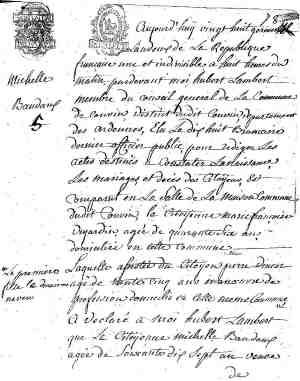 Aujourd'huy vingt huit germinal
Landeux de La Republique
française une et indivisible a huit heures du
matin pardevant moi hubert Lambert
membre du conseil general de La Commune
de couvin District dudit Couvin Departement
des ardennes, Elu Le dix huit Brumaire
dernier officier public pour rediger Les
actes destinés a Constater La naissance
Les mariages et decès des Citoyens Est
Comparut en La Salle de La Maison Commune
dudit Couvin La Citoyenne
agée de quarante six ans
domiciliée en cette commune
Laquelle assistée du Citoyen
agé de trente cinq ans
profession domicilié en cette meme Commune
a declaré a Moi hubert Lambert
que La Citoyenne michelle Baudaux
agée de soixante dix sept ans veuve
de
Michelle
Baudaux
5
Le premiere
neveu